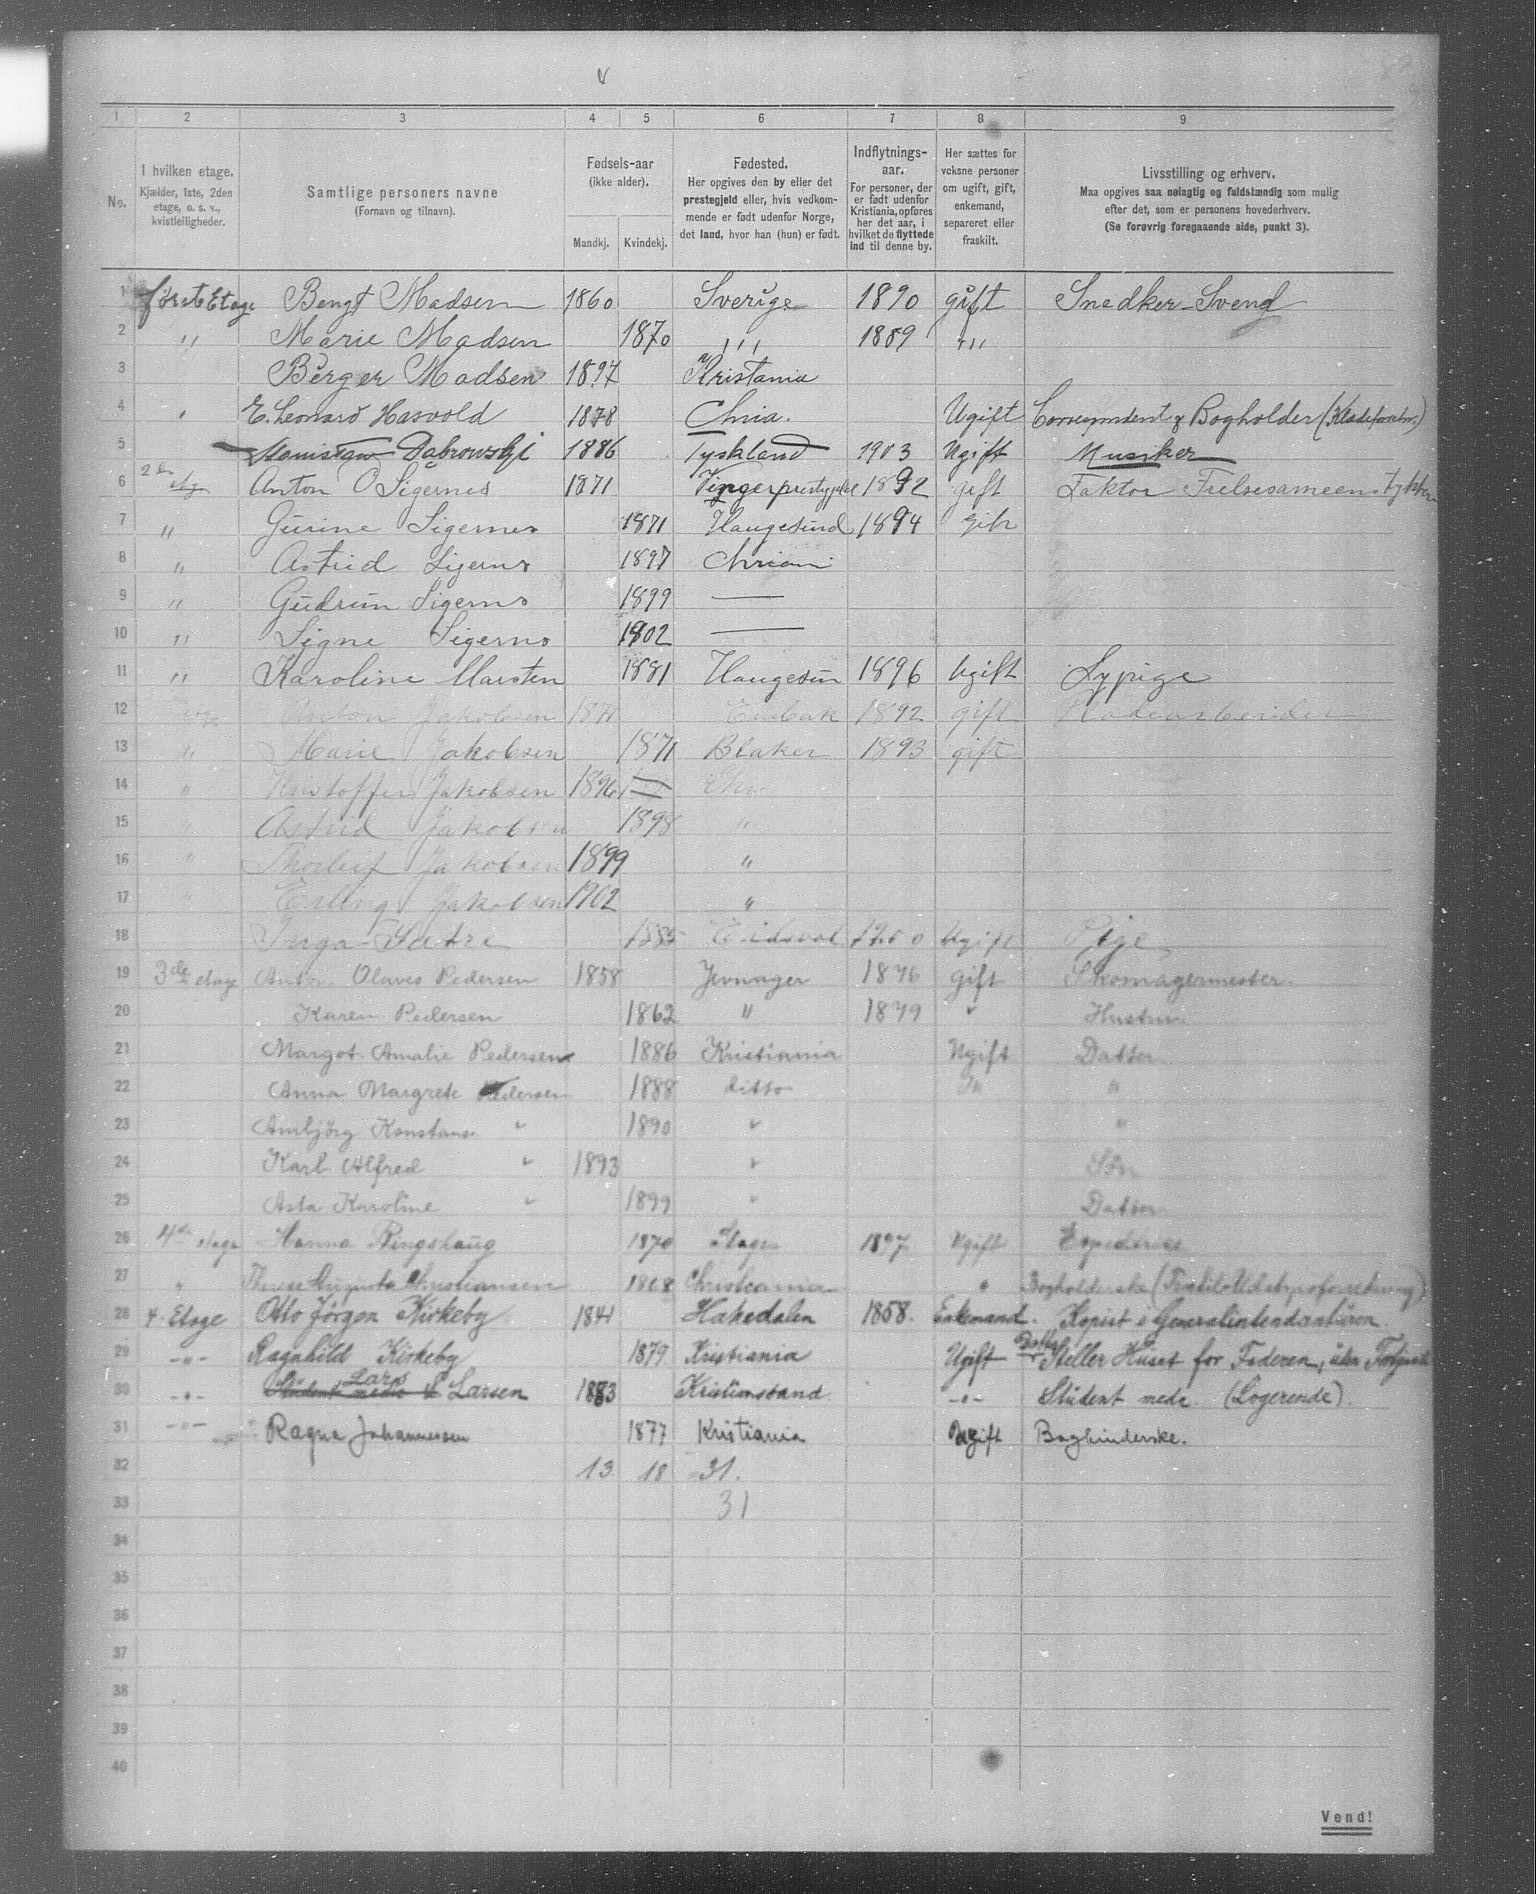 1 2 3 4 5 6 7 8 9
No.
I hvilken etage. Kjælder, 1ste, 2den etage, o. s. v., kvistleiligheder.
Samtlige personers navne (Fornavn og tilnavn).
Fødsels-aar (ikke alder).
Mandkj. Kvindekj.
Fødested. Her opgives den by eller det prestegjeld eller, hvis vedkommende er født udenfor Norge, det land, hvor han (hun) er født.
Indflytnings-aar. For personer, der er født udenfor Kristiania, opføres her det aar, i hvilket de flyttede ind til denne by.
Her sættes for voksne personer om ugift, gift, enkemand, separeret eller fraskilt.
Livsstilling og erhverv. Maa opgives saa nøiagtig og fuldstændig som mulig efter det, som er personens hovederhverv. (Se forøvrig foregaaende side, punkt 3).
1 første Etage Bengt Madsen 1860 Sverige 1890 gift Snedker-Svend
2 " Marie Madsen 1870 " 1889 "
3 Berger Madsen 1897 Kristania
4 " E. Leonard Hasvold 1878 Chnia. Ugift Correspondent & Bogholder
5 Stanislaw Dabrowski 1886 Tyskland 1903 Ugift Musiker
6 2den Anton O Sigernes 1871 1892 gift Faktor
7 " Gurine Sigernes 1871 Haugesund 1894 Gift
8 " Astrid Sigernes 1897
9 " Gudrun Sigernes 1899 —
10 " Signe Sigernes 1902 —
11 " Karoline Marsten 1881 Haugesun 1896 Ugift Sypige
12 Anton Jakobsen 1871 Enebak 1892 gift
13 " Marie Jakobsen 1871 Blaker 1893 gift
14 " Kristoffer Jakobsen 1896
15 " Astrid Jakobsen 1898 "
16 " Thorleif Jakobsen 1899 "
17 " Erling Jakobsen 1902 "
18 Inga Sætre 1885 Eidsvol 1900 Ugift Pige
19 3die etage Anton Olaves Pedersen 1858 Jevnager 1876 Gift Skomagermester.
20 Karen Pedersen 1862 " 1879 " Hustru
21 Margot Amalie Pedersen 1886 Kristiania Ugift Datter
22 Anna Margrete Pedersen 1888 ditto "
23 Ambjörg Konstanse " 1890 " "
24 Karl Alfred " 1893 " Sön
25 Asta Karoline " 1899 " Datter
26 4de etage Hanna Ringshaug 1870 1897 Ugift
27 " Therese Augusta Christiansen 1868 Christiania " Bogholderske
28 4. Etage Otto Jørgen Kirkeby 1841 Hakedalen 1858. Enkemand. Kopist i Generalintendanturen.
29 —"— Ragnhild Kirkeby 1879 Kristiania Ugift Datter Steller Huset for Faderen,
30 —"— Lars Larsen 1883 Kristianssand —"— Student medc. (Logerende).
31 —"— Ragna Johannessen 1877 Kristiania Ugift Bogbinderske.
32 13 18 31.
33 31
34
35
36
37
38
39
40
Vend!